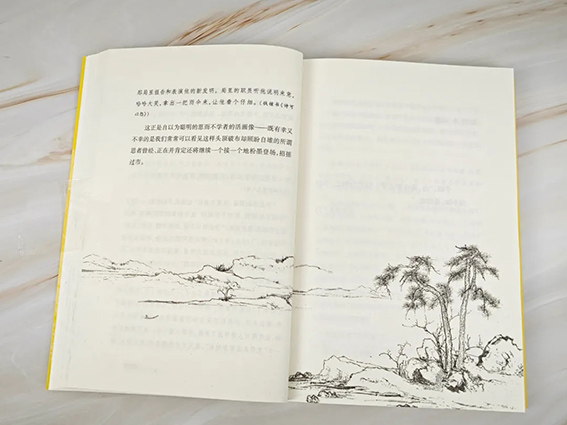 那局里报告和表演他的新发明。局里的职员听他说明来意，
哈哈大笑，拿出一把雨伞来，让他看个仔细。（钱锺书《诗可
以怨》）
这正是自以为聪明的思而不学者的活画像——既有幸又
不幸的是我们常常可以看见这样头顶破布却缤纷自雄的所谓
思者曾经、正在并肯定还将继续一个接一个地粉墨登场，招摇
过市。